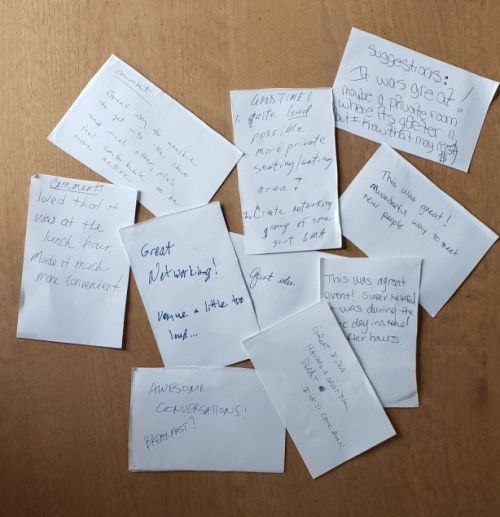 comment
Great way to
to get into the club
and meet other
feel comfortable to be
more active.
GOOD TIME!
1. quite loud
possible
more private
seating/eating
area?
2. Create networking
group of some
sort
Suggestions:
It was great!
maybe a private room
where its quieter!!
but I know that may cost
$$
Comments
loved that it
was at the
lunch hour
Made it much
more convenient
Great
Networking!
Venue a little too
loud...
Great idea
This was great!
wonderful way to meet
new people
This was a great
event! Super helpful
was during the
day instead
after hours
GREAT IDEA
HAVING A GOOD TIME
I WILL COME AGAIN
AWESOME
CONVERSATIONS!
BREAKFAST?